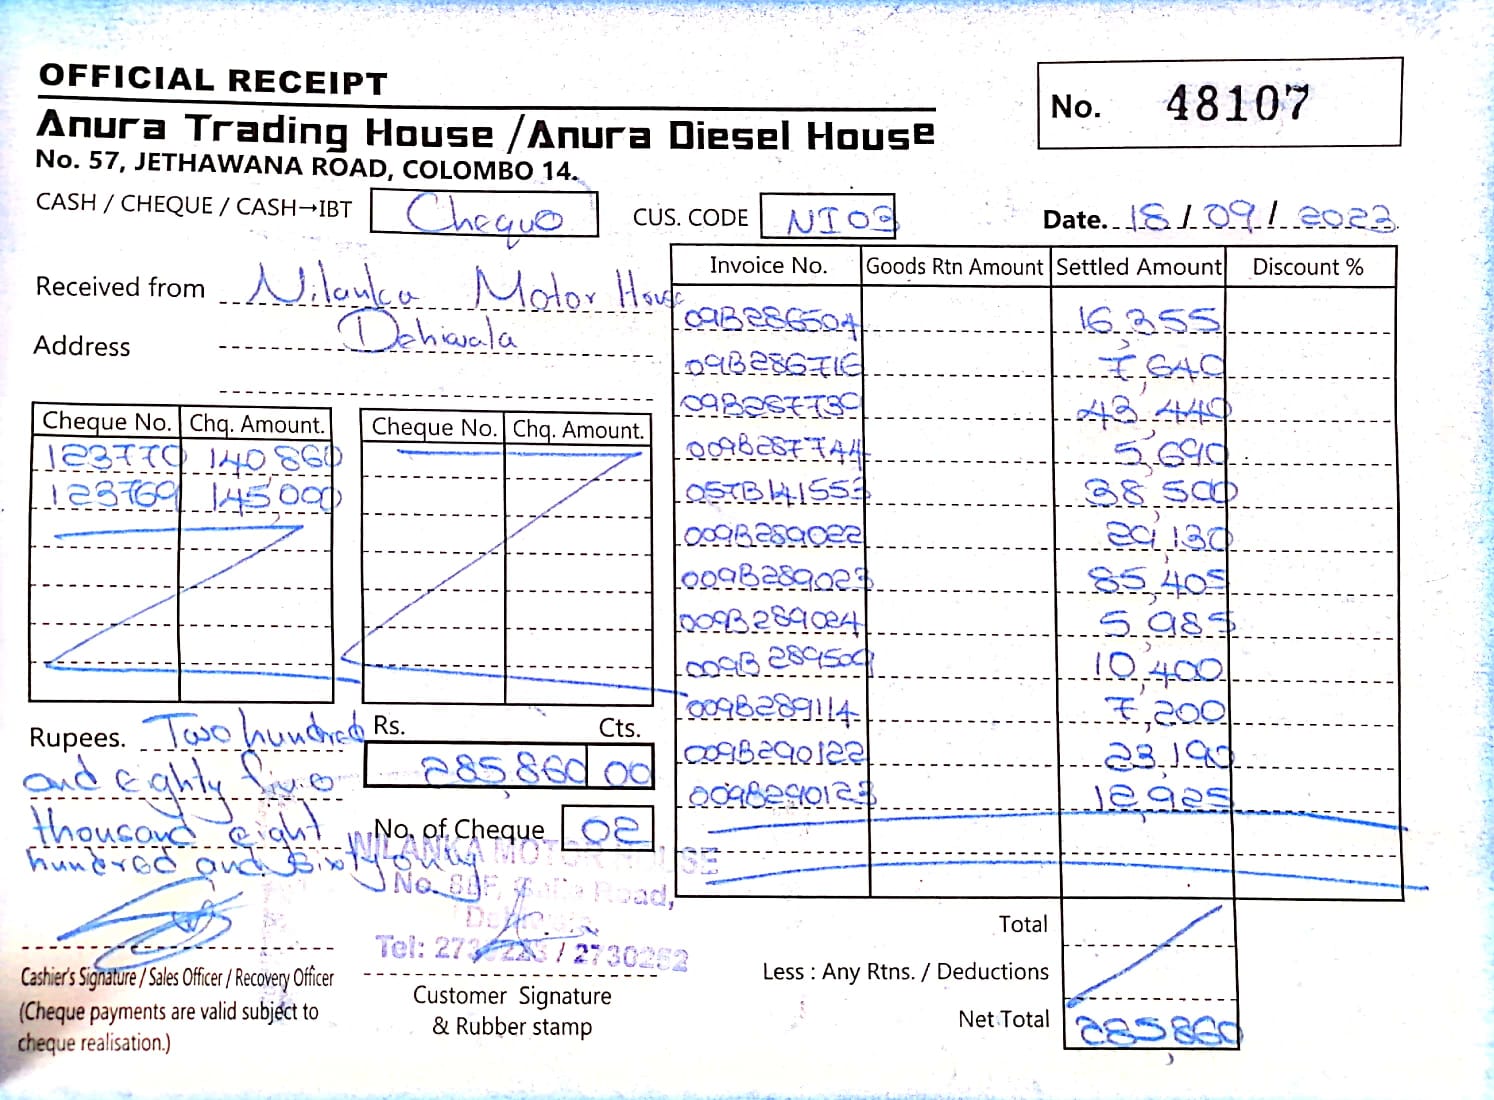 OFFICIAL RECEIPT
No. 48107
Anura Trading House /Anura Diesel House
No. 57, JETHAWANA ROAD, COLOMBO 14.
CASH / CHEQUE / CASH→IBT Cheque CUS. CODE NI03 Date. 18/09/2023
Received from Nilanka Motor House
Address Dehiwala
Cheque No. Chq. Amount.
123770 140,860
123769 145,000
Cheque No. Chq. Amount.
Rupees. Two hundred
and Eighty five
thousand eight
hundred and Sixty only
Rs. Cts.
285,860 00
No. of Cheque 02
Invoice No. Goods Rtn Amount Settled Amount Discount %
09B286504 16,355
09B286716 7,640
09B287730 43,440
009B287744 5,690
057B141553 38,500
009B289022 29,130
009B289023 85,405
009B289024 5,985
009B289509 10,400
009B289114 7,200
009B290122 23,190
009B290123 12,925
Total
Less : Any Rtns. / Deductions
Net Total 285,860
NILANKA MOTOR HOUSE
Road,
Tel: / 2730252
Cashier's Signature / Sales Officer / Recovery Officer
(Cheque payments are valid subject to
cheque realisation.)
Customer Signature
& Rubber stamp